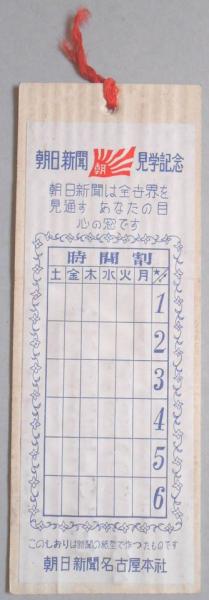 朝日新聞 朝 見学記念
朝日新聞は全世界を
見通す あなたの目
心の窓です
時間割
土 金 木 水 火 月
1
2
3
4
5
6
このしおりは新聞の紙型で作つたものです
朝日新聞名古屋本社